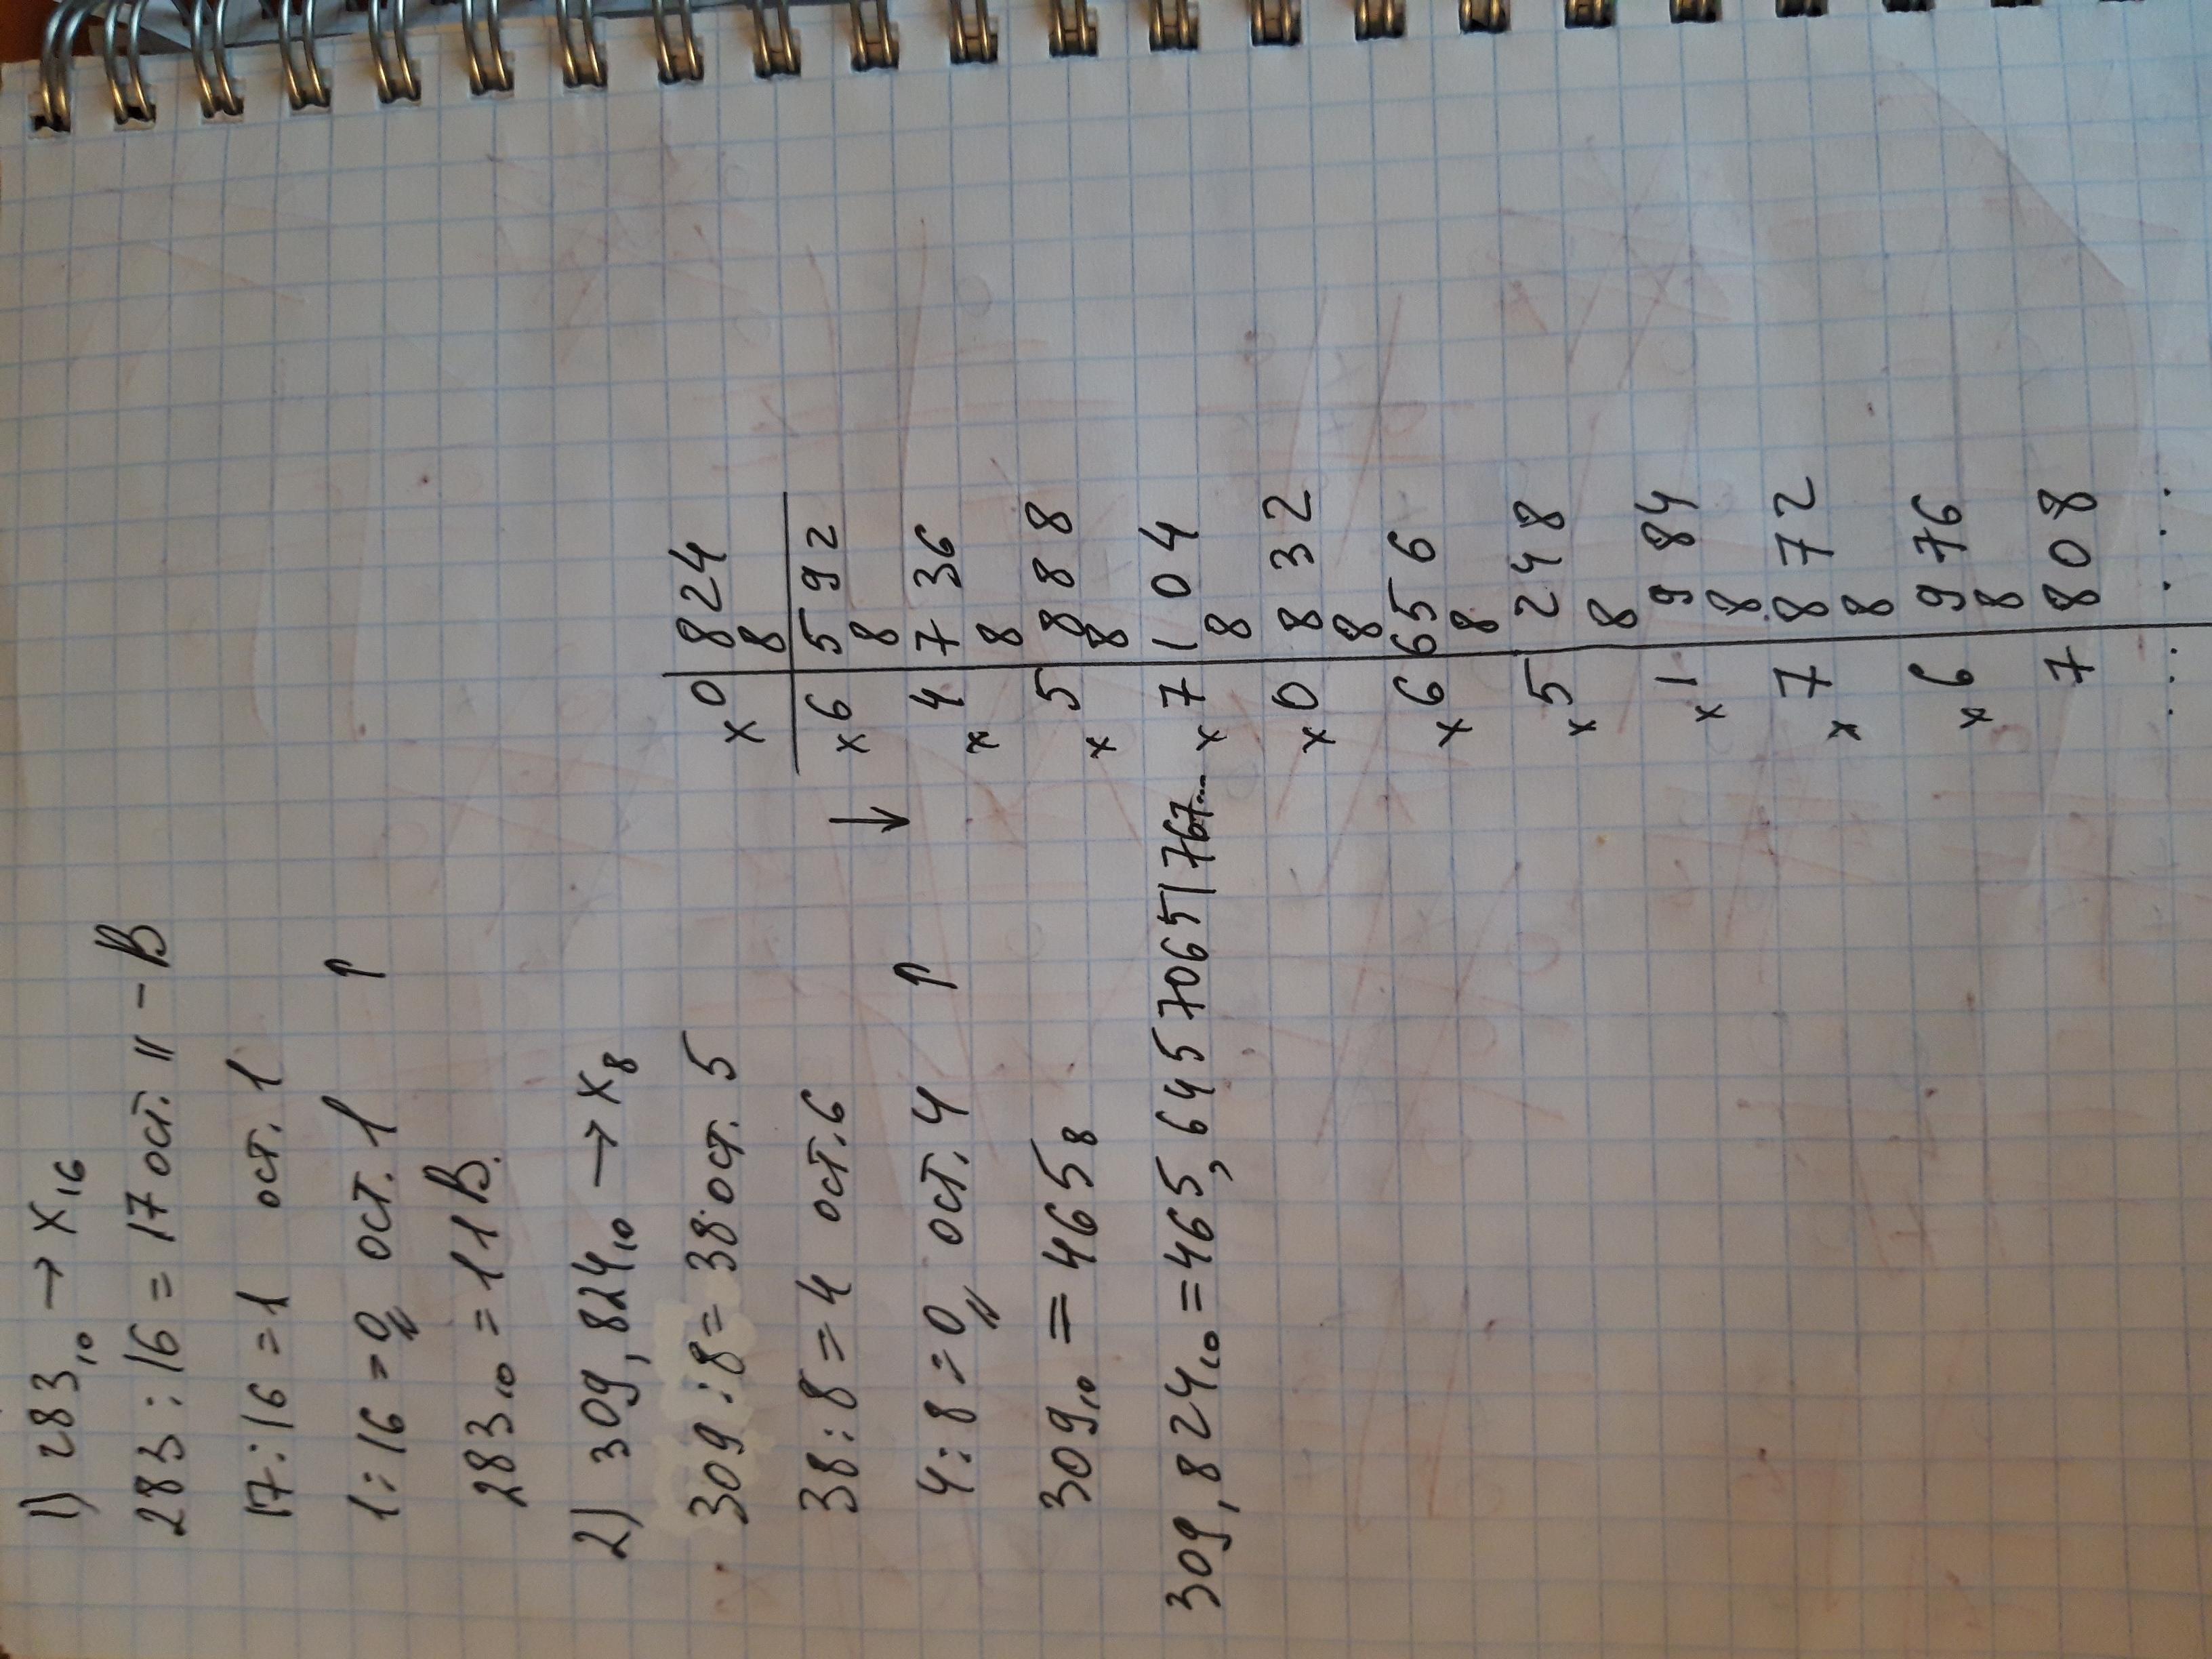 1) 283₁₀ → X₁₆
283 : 16 = 17 ост. 11 - B
17 : 16 = 1 ост. 1
1 : 16 = 0 ост. 1 ↑
283₁₀ = 11B.
2) 309,824₁₀ → X₈
309 : 8 = 38 ост. 5
38 : 8 = 4 ост. 6
4 : 8 = 0 ост. 4 ↑
309₁₀ = 465₈
309,824₁₀ = 465,64570651767...
x 0 | 824
8
↓
x 6 | 592
8
x 4 | 736
8
x 5 | 888
8
x 7 | 104
8
x 0 | 832
8
x 6 | 656
8
x 5 | 248
8
x 1 | 984
8
x 7 | 872
8
x 6 | 976
8
7 | 808
... | ...